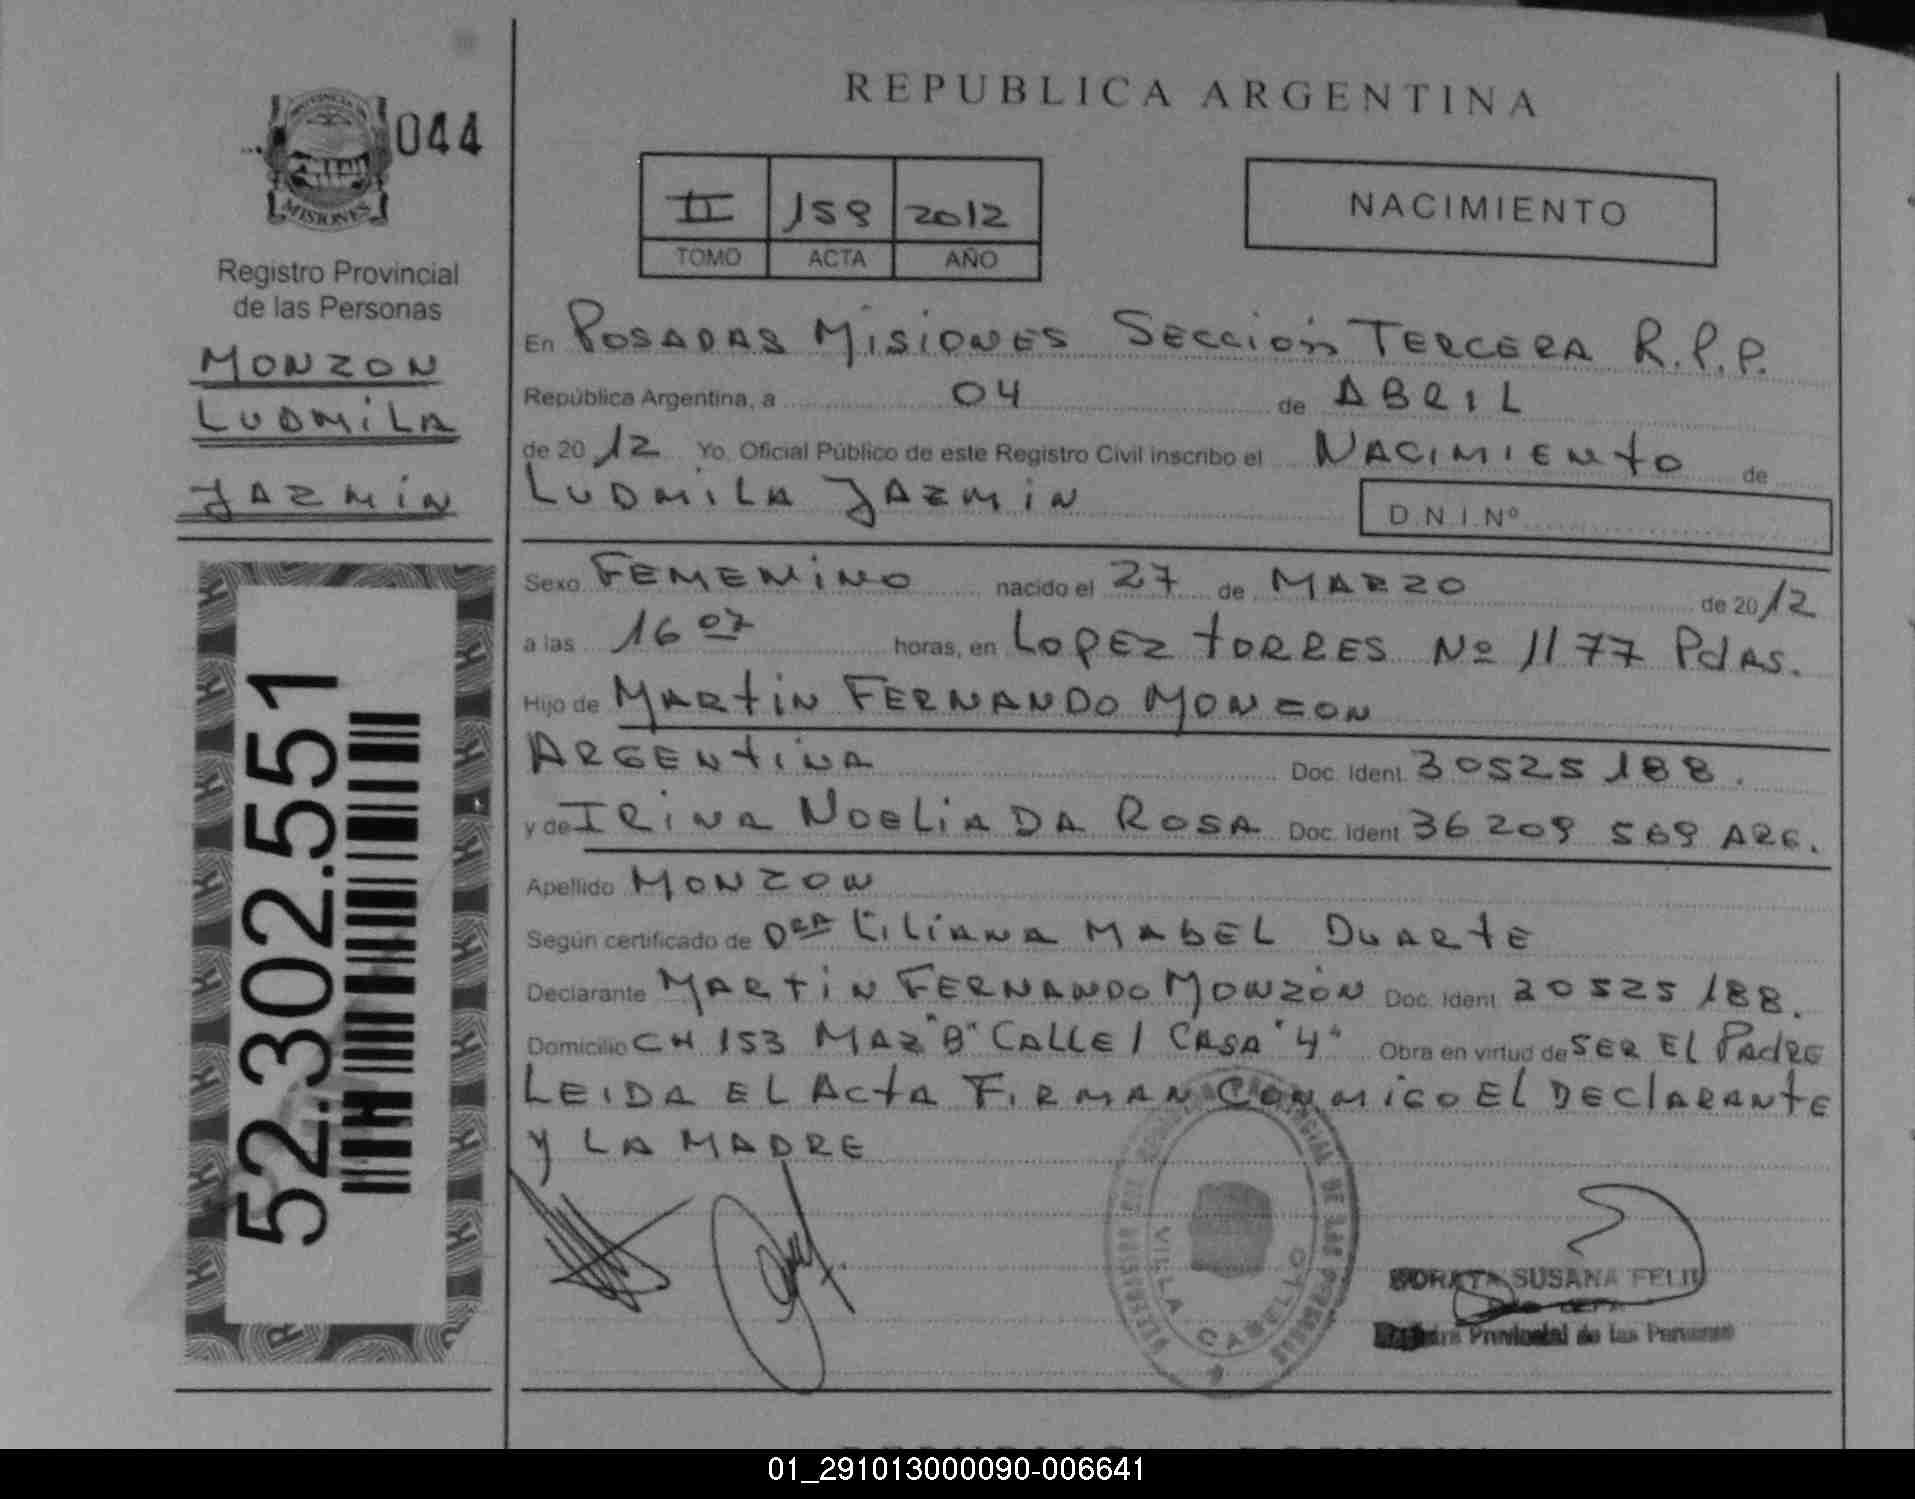 044
MISIONES
Registro Provincial
de las Personas
MONZON
LUDMILA
JAZMIN
52.302.551
REPUBLICA ARGENTINA
II 159 2012
TOMO ACTA AÑO
NACIMIENTO
En POSADAS MISIONES SECCIÓN TERCERA R.P.P.
República Argentina, a 04 de ABRIL
de 2012 Yo. Oficial Público de este Registro Civil inscribo el NACIMIENTO de
LUDMILA JAZMIN D.N.I.Nº
Sexo FEMENINO nacido el 27 de MARZO de 2012
a las 16 07 horas, en LOPEZ TORRES Nº 1177 Pdas.
Hijo de MARTIN FERNANDO MONZON
ARGENTINA Doc. Ident. 30525188.
y de IRINA NOELIA DA ROSA Doc. Ident 36209 569 ARG.
Apellido MONZON
Según certificado de Dra LILIANA MABEL DUARTE
Declarante MARTIN FERNANDO MONZÓN Doc. Ident. 30525188.
Domicilio CH 153 MAZ "B" CALLE 1 CASA "4" Obra en virtud de SER EL PADRE
LEIDA EL ACTA FIRMAN CONMIGO EL DECLARANTE
Y LA MADRE
VILLA CABELLO
SUSANA
Provincial de las Personas
01_291013000090-006641